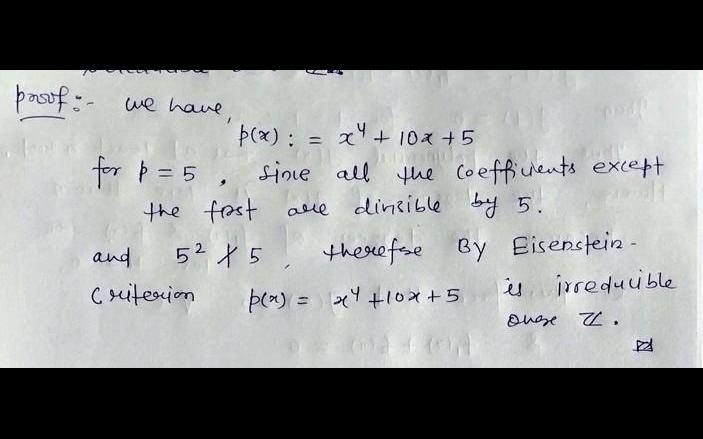 proof :- we have,
p(x) : = x⁴ + 10x + 5
for p = 5 , since all the coefficients except
the first are divisible by 5.
and 5² ∤ 5 , therefore By Eisenstein -
Criterion p(x) = x⁴ + 10x + 5 is irreducible
over ℤ .